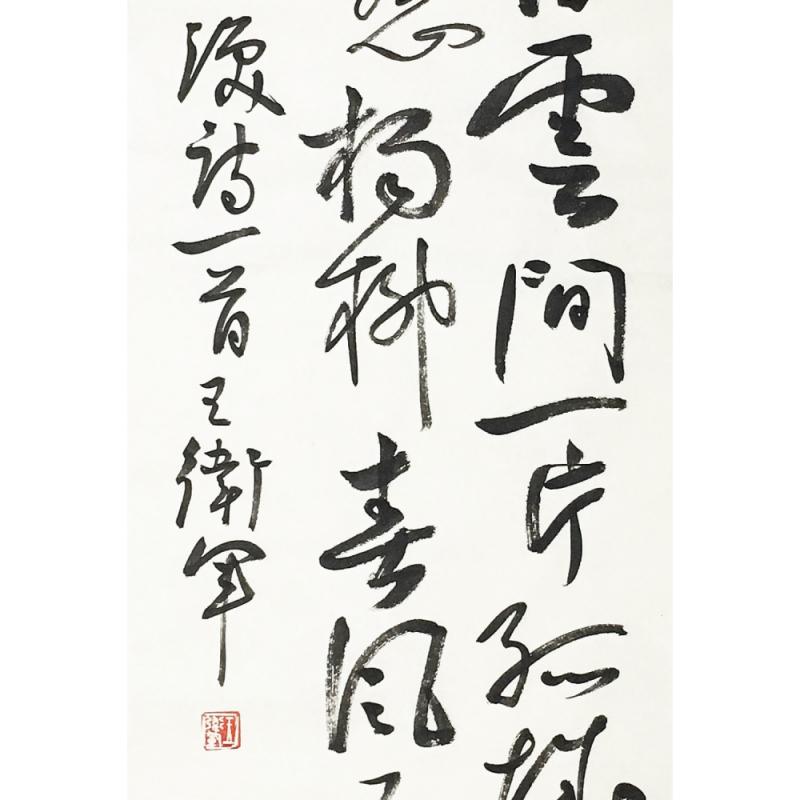 雲間一片孤城
怨楊柳春風
渙詩一首王衛軍